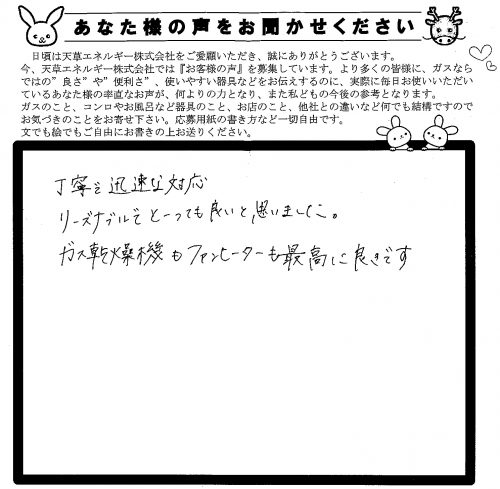 あなた様の声をお聞かせください
日頃は天草エネルギー株式会社をご愛顧いただき、誠にありがとうございます。
今、天草エネルギー株式会社では『お客様の声』を募集しています。より多くの皆様に、ガスなら
ではの”良さ”や”便利さ”、使いやすい器具などをお伝えするのに、実際に毎日お使いいただい
ているあなた様の率直なお声が、何よりの力となり、また私どもの今後の参考となります。
ガスのこと、コンロやお風呂など器具のこと、お店のこと、他社との違いなど何でも結構ですので
お気づきのことをお寄せ下さい。応募用紙の書き方など一切自由です。
文でも絵でもご自由にお書きの上お送りください。
丁寧で迅速な対応
リーズナブルでとーっても良いと思いました。
ガス乾燥機もファンヒーターも最高に良きです